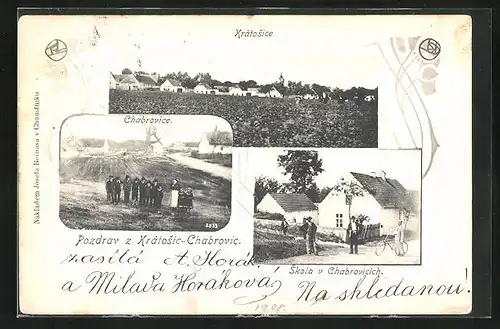 Krátošice
Chabrovice.
Nákladem Josefa Bernasa v Choustníku
2833
Pozdrav z Krátošic-Chabrovic.
Skola v Chabrovicích.
zasílá A. Horák
a Milava Horáková
Na shledanou!